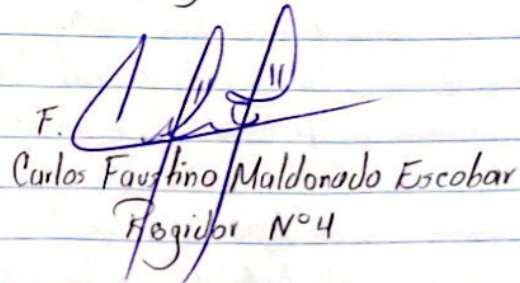 F.
Carlos Faustino Maldonado Escobar
Regidor N°4